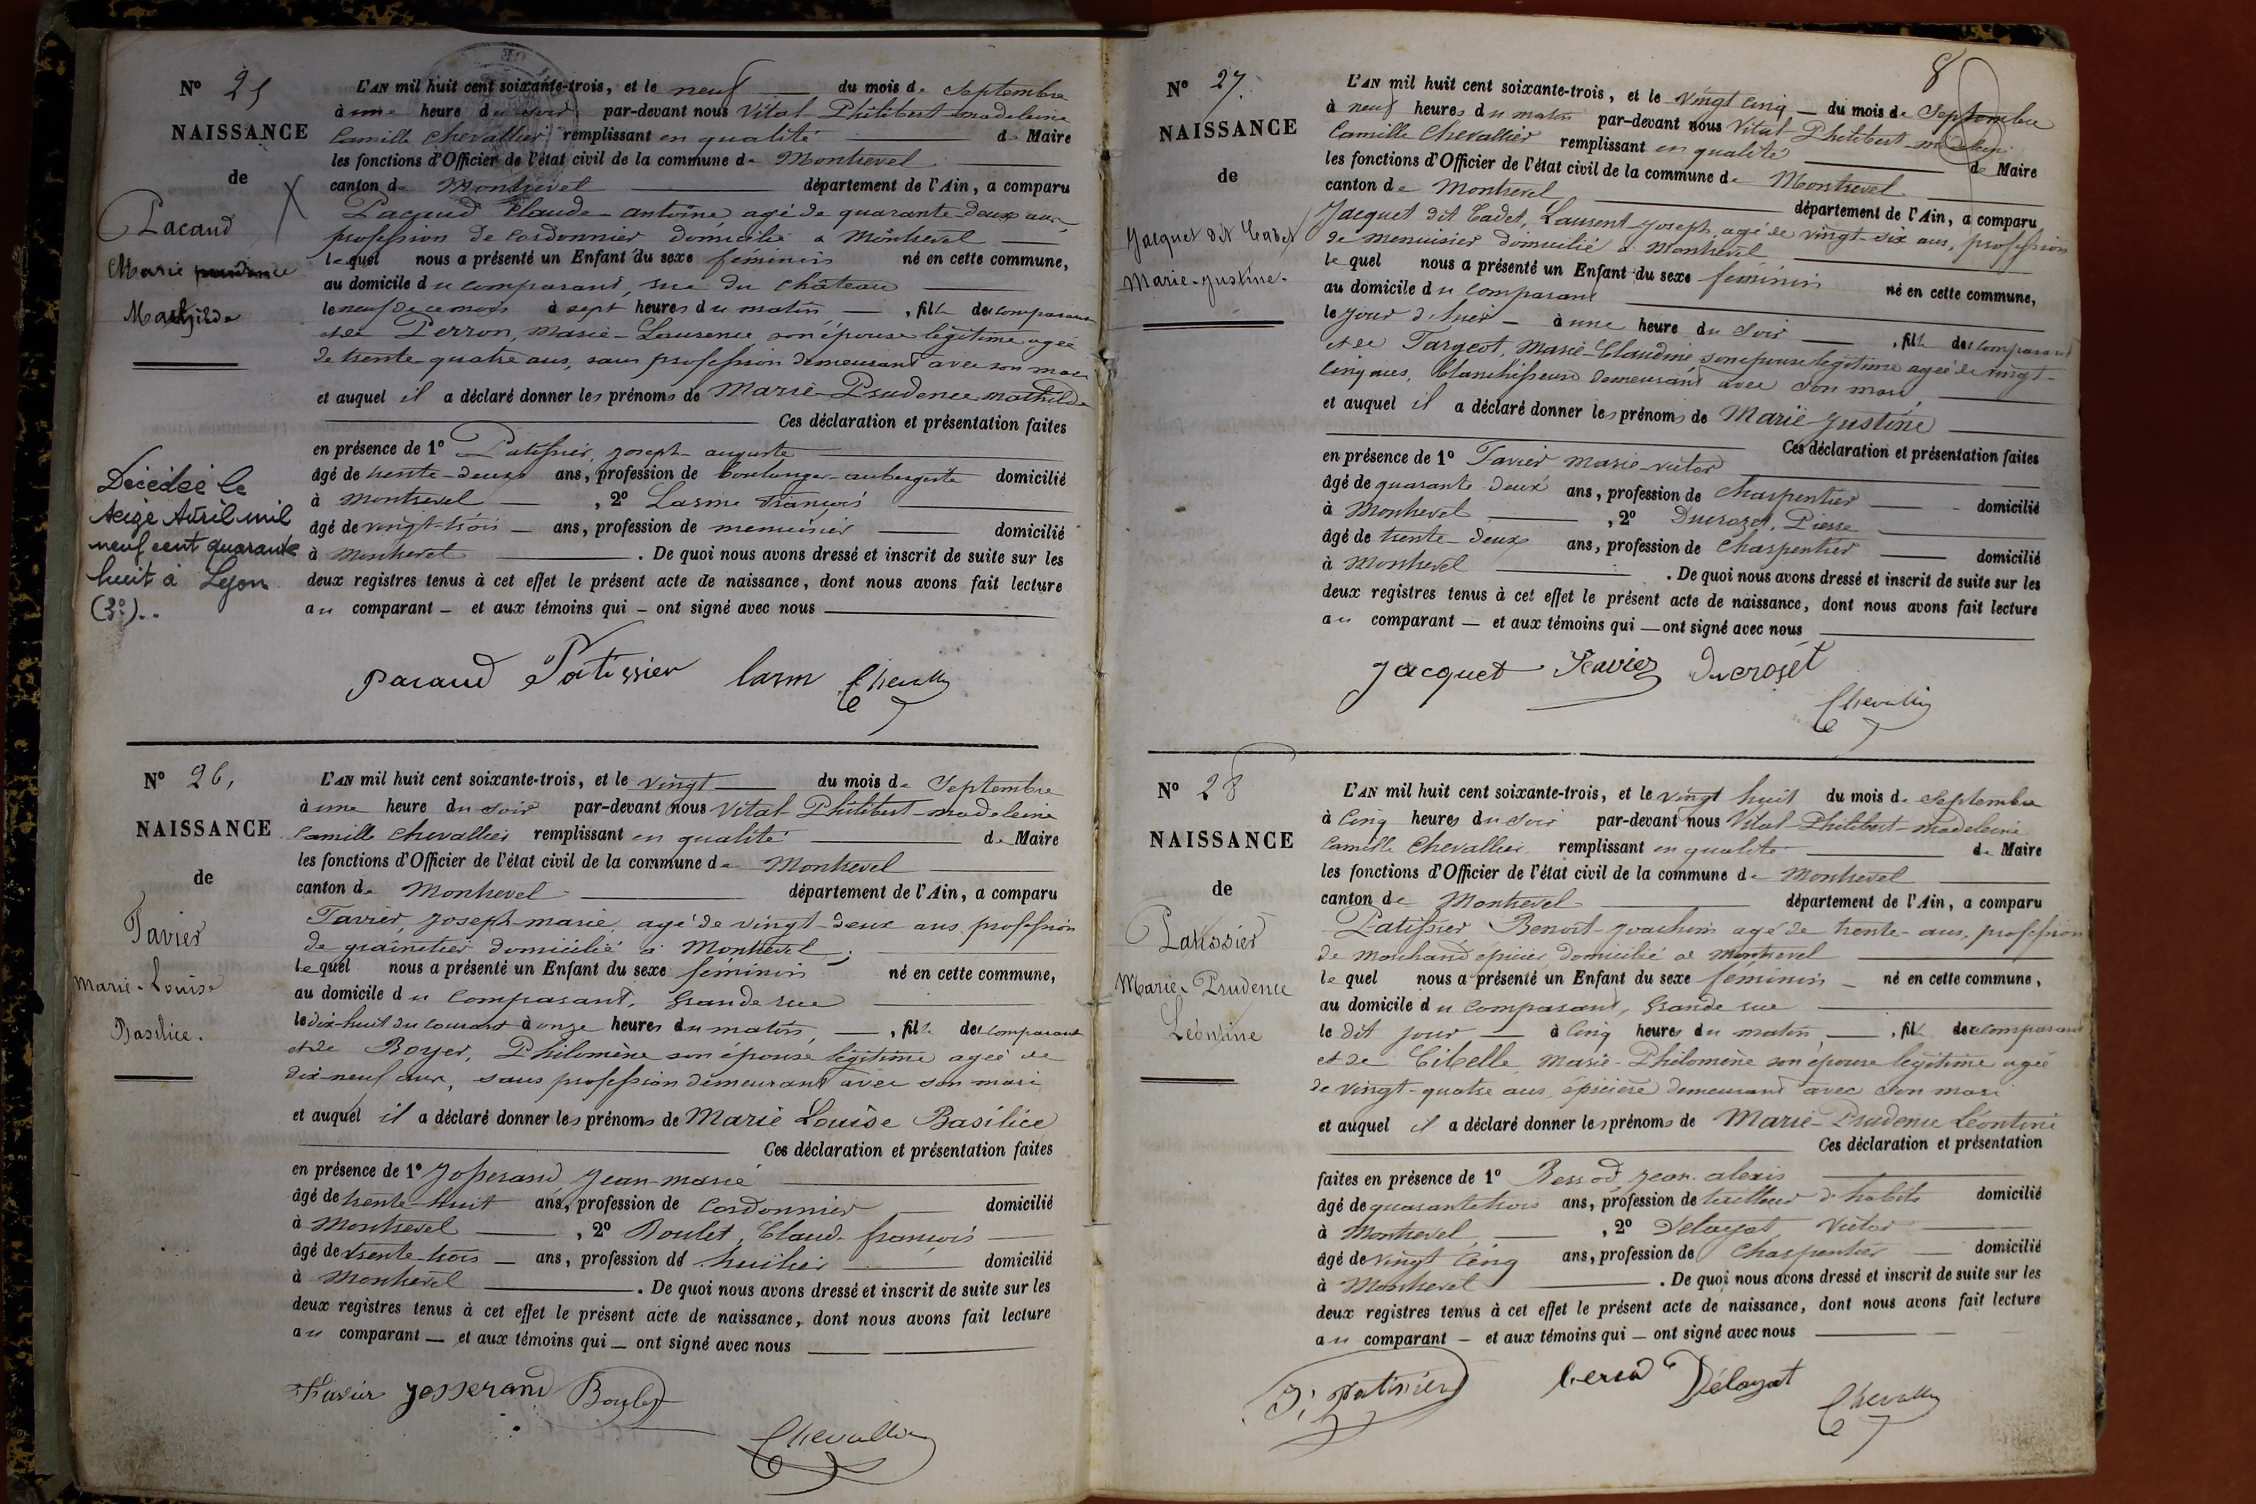 Nº 25
NAISSANCE
de
Pacaud
Marie prudence
Mathilde
Décédée le
seize Avril mil
neuf cent quarante
huit à Lyon
(3º)..
L'AN mil huit cent soixante-trois, et le neuf du mois de Septembre
à une heure du soir par-devant nous Vital Philibert-madeleine
Camille Chevallier remplissant en qualité de Maire
les fonctions d'Officier de l'état civil de la commune de Montrevel
canton de Montrevel département de l'Ain, a comparu
Pacaud Claude-antoine agé de quarante-deux ans,
profession de Cordonnier domicilié à Montrevel
lequel nous a présenté un Enfant du sexe feminin né en cette commune,
au domicile du comparant, rue du Château
le neuf de ce mois à sept heures du matin, fille des comparant
et de Perron, Marie-Laurence son épouse légitime agée
de trente-quatre ans, sans profession demeurant avec son mari
et auquel il a déclaré donner les prénoms de Marie-Prudence mathilde
Ces déclaration et présentation faites
en présence de 1º Patissier, joseph-auguste
âgé de trente-deux ans, profession de boulanger-aubergiste domicilié
à Montrevel, 2º Larme François
âgé de vingt-trois ans, profession de menuisier domicilié
à Montrevel. De quoi nous avons dressé et inscrit de suite sur les
deux registres tenus à cet effet le présent acte de naissance, dont nous avons fait lecture
au comparant – et aux témoins qui – ont signé avec nous
pacaud Patissier larm Chevallier
Nº 26,
NAISSANCE
de
Tavier
Marie-Louise
Basilice.
L'AN mil huit cent soixante-trois, et le vingt du mois de Septembre
à une heure du soir par-devant nous Vital Philibert-madeleine
Camille Chevallier remplissant en qualité de Maire
les fonctions d'Officier de l'état civil de la commune de Montrevel
canton de Montrevel département de l'Ain, a comparu
Tavier, joseph-marie, agé de vingt-deux ans, profession
de grainetier domicilié à Montrevel,
lequel nous a présenté un Enfant du sexe feminin né en cette commune,
au domicile du comparant, Grande rue
le dix-huit du courant à onze heures du matin, fille des comparant
et de Boyer, Philomène son épouse légitime agée de
dix-neuf ans, sans profession demeurant avec son mari
et auquel il a déclaré donner les prénoms de Marie Louise Basilice
Ces déclaration et présentation faites
en présence de 1º Josserand Jean-marie
âgé de trente-huit ans, profession de Cordonnier domicilié
à Montrevel, 2º Boulet, Claude françois
âgé de trente-trois ans, profession de huilier domicilié
à Montrevel. De quoi nous avons dressé et inscrit de suite sur les
deux registres tenus à cet effet le présent acte de naissance, dont nous avons fait lecture
au comparant – et aux témoins qui – ont signé avec nous
Tavier josserand Boulet
Chevallier
8
Nº 27.
NAISSANCE
de
Jacquet dit Cadet
Marie-Justine.
L'AN mil huit cent soixante-trois, et le vingt cinq du mois de Septembre
à neuf heures du matin par-devant nous Vital Philibert-madeleine
Camille Chevallier remplissant en qualité de Maire
les fonctions d'Officier de l'état civil de la commune de Montrevel
canton de Montrevel département de l'Ain, a comparu
Jacquet dit Cadet, Laurent-joseph, agé de vingt-six ans, profession
de menuisier domicilié à Montrevel
lequel nous a présenté un Enfant du sexe féminin né en cette commune,
au domicile du comparant
le jour d'hier à une heure du soir, fille des comparant
et de Targeot, Marie-Claudine son épouse légitime agée de vingt-
cinq ans, blanchisseuse demeurant avec son mari,
et auquel il a déclaré donner les prénoms de Marie Justine
Ces déclaration et présentation faites
en présence de 1º Tavier marie-victor
âgé de quarante-deux ans, profession de Charpentier domicilié
à Montrevel, 2º Ducrozet, Pierre
âgé de trente-deux ans, profession de Charpentier domicilié
à Montrevel. De quoi nous avons dressé et inscrit de suite sur les
deux registres tenus à cet effet le présent acte de naissance, dont nous avons fait lecture
au comparant – et aux témoins qui – ont signé avec nous
jacquet Tavier Ducroset
Chevallier
Nº 28
NAISSANCE
de
Patissier
Marie-Prudence
Léontine
L'AN mil huit cent soixante-trois, et le vingt huit du mois de Septembre
à cinq heures du soir par-devant nous Vital-Philibert-madeleine
Camille Chevallier remplissant en qualité de Maire
les fonctions d'Officier de l'état civil de la commune de Montrevel
canton de Montrevel département de l'Ain, a comparu
Patissier Benoit-joachim agé de trente-ans, profession
de marchand épicier, domicilié à Montrevel
lequel nous a présenté un Enfant du sexe féminin né en cette commune,
au domicile du comparant, Grande rue
le dit jour à cinq heures du matin, fille des comparant
et de Cibelle, Marie-Philomène son épouse légitime agée
de vingt-quatre ans, épicière demeurant avec son mari
et auquel il a déclaré donner les prénoms de Marie-Prudence Léontine
Ces déclaration et présentation
faites en présence de 1º Bessod, jean-alexis
âgé de quarante trois ans, profession de tailleur d'habits domicilié
à Montrevel, 2º Delayat, Victor
âgé de vingt cinq ans, profession de Charpentier domicilié
à Montrevel. De quoi nous avons dressé et inscrit de suite sur les
deux registres tenus à cet effet le présent acte de naissance, dont nous avons fait lecture
au comparant – et aux témoins qui – ont signé avec nous
Patissier Délayat Chevallier